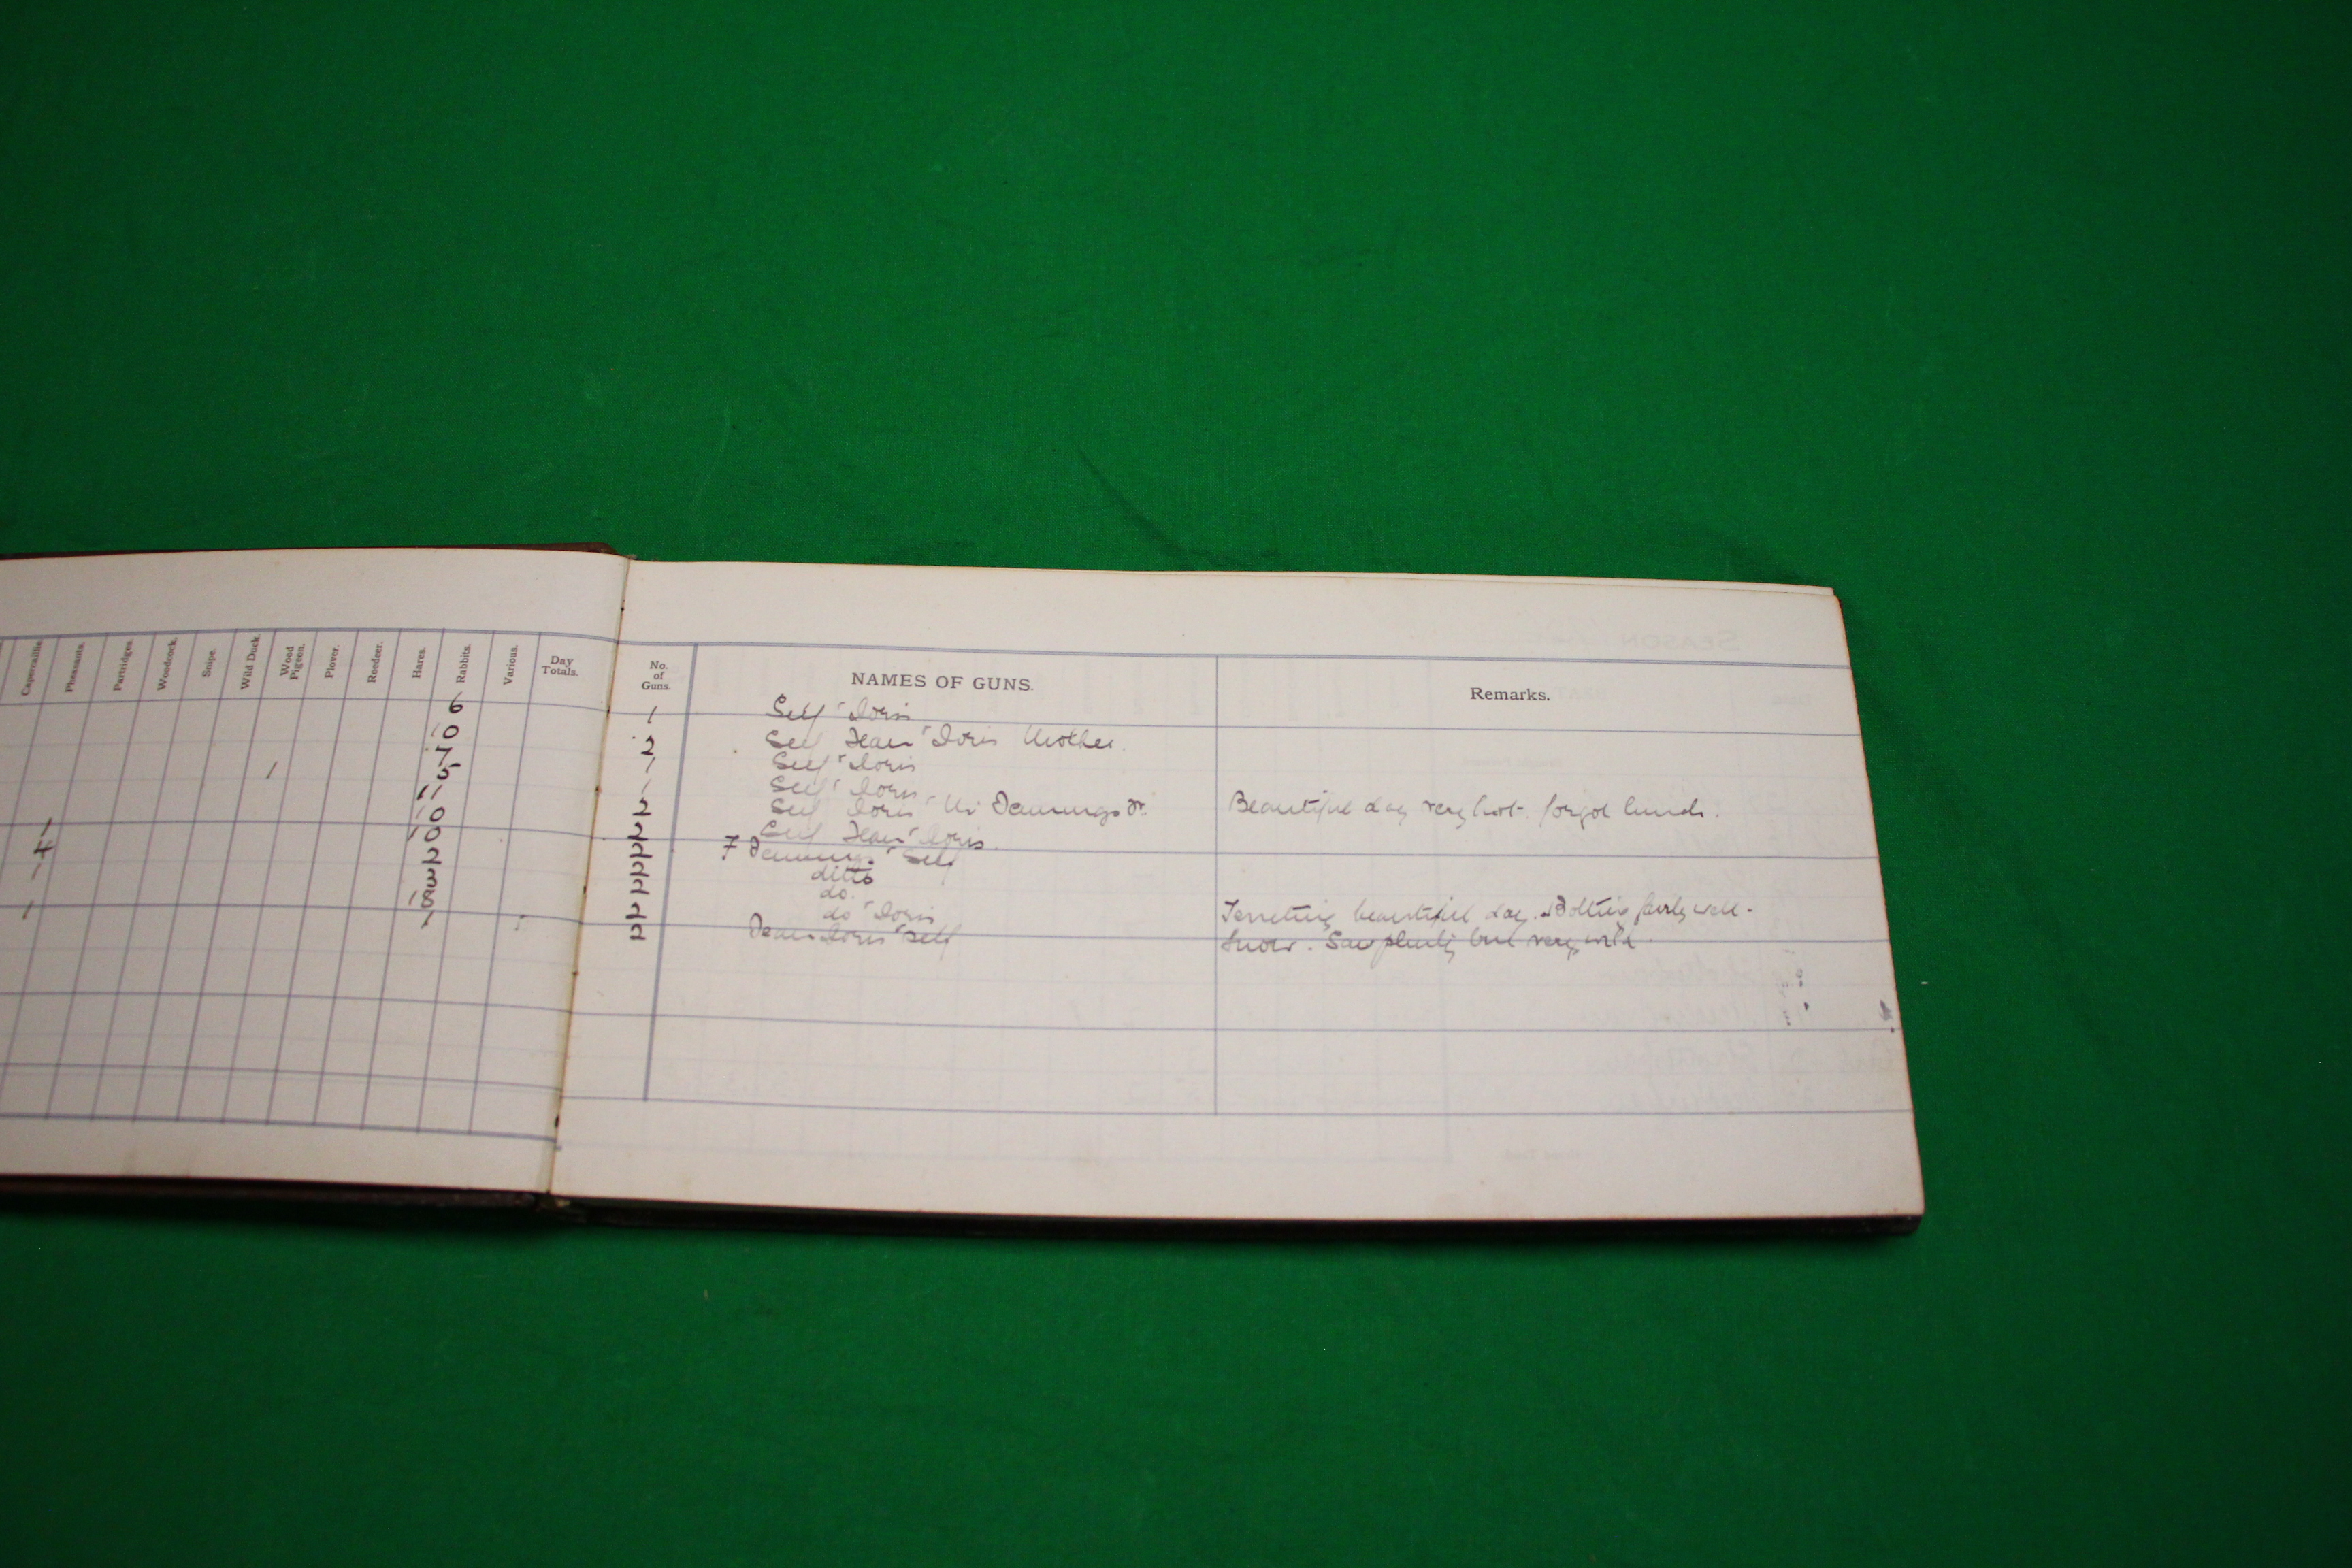 Capercailzie. Pheasants. Partridges. Woodcock. Snipe. Wild Duck. Wood Pigeon. Plover. Roedeer. Hares. Rabbits. Various. Day Totals.
No. of Guns. NAMES OF GUNS. Remarks.
6 1 Self & Doris
10 2 Self Jean & Doris Mother.
7 1 Self & Doris
1 5 1 Self & Doris
11 2 Self Doris & Mr Jennings Jr. Beautiful day very hot. forgot lunch.
10 2 Self Jean & Doris.
1 10 2 F Jennings & Self
4 2 2 ditto
1 3 2 do.
18 2 do & Doris Ferreting beautiful day. Bolting fairly well.
1 1 2 Jean Doris & Self Snow. Saw plenty but very wild.
SEASON